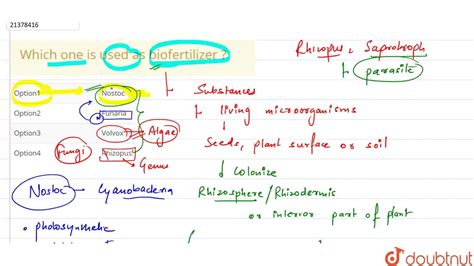 21378416
Which one is used as biofertilizer ?
Option1 Nostoc
Option2 Funaria
Option3 Volvox Algae
Option4 Rhizopus
Fungi
Genus
Nostoc Cyanobacteria
• photosynthetic
Rhizopus : Saprotroph
parasite
Substances
living microorganisms
Seeds, plant surface or soil
colonize
Rhizosphere/Rhizodermis
or interior part of plant
doubtnut